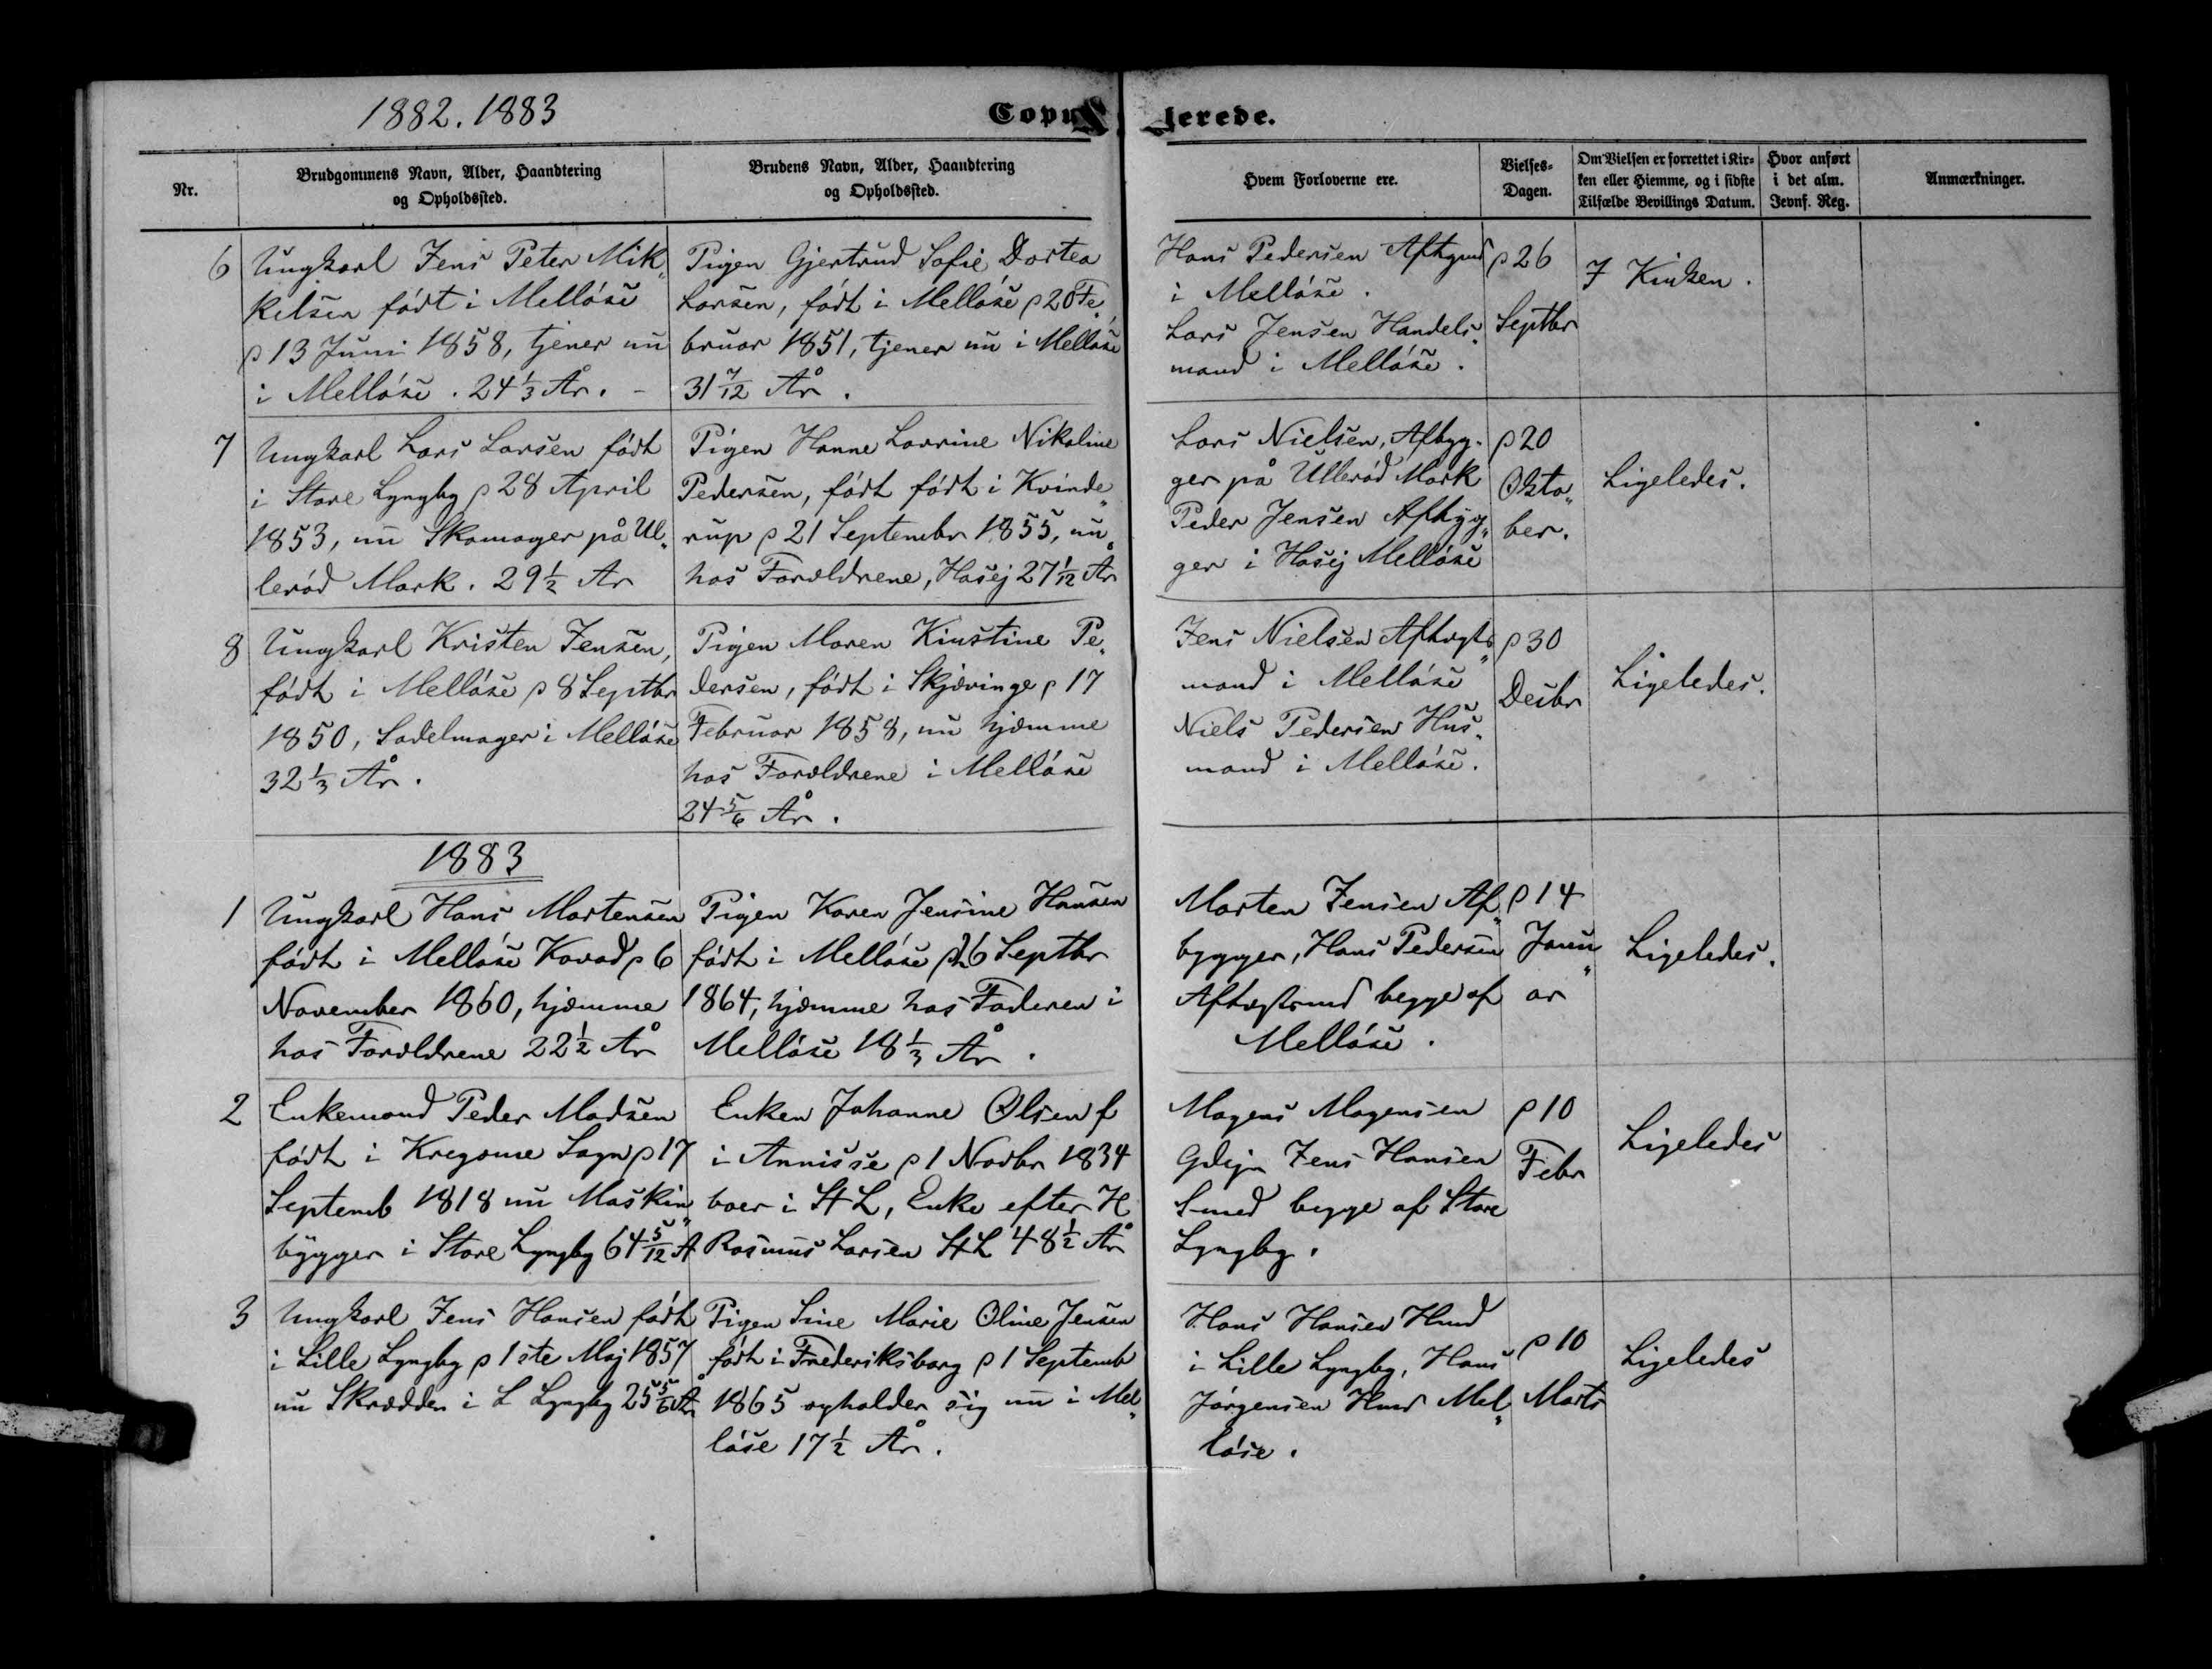 1882. 1883
Copulerede.
Nr.
Brudgommens Navn, Alder, Haandtering
og Opholdssted.
Brudens Navn, Alder, Haandtering
og Opholdssted.
Hvem Forloverne ere.
Vielses-
Dagen.
Om Vielsen er forrettet i Kir-
ken eller Hiemme, og i sidste
Tilfælde Bevillings Datum.
Hvor anført
i det alm.
Jevnf. Reg.
Anmærkninger.
6
Ungkarl Jens Peter Mik„
kelsen født i Melløse
p 13 Juni 1858, tjener nu
i Melløse. 24 1/3 År. -
Pigen Gjertrud Sofie Dortea
Larsen, født i Melløse p 20 Fe„
bruar 1851, tjener nu i Melløse
31 7/12 År.
Hans Pedersen
i Melløse.
Lars Jensen Handels„
mand i Melløse.
p 26
Septbr
I Kirken.
7
Ungkarl Lars Larsen født
i Store Lyngby p 28 April
1853, nu Skomager på Ul„
lerød Mark. 29 1/2 År
Pigen Hanne Lavrine Nikoline
Pedersen, født født i Kvinde„
rup p 21 Septembr 1855, nu
hos Forældrene, Høsej 27 1/12 År
Lars Nielsen, Afbyg-
ger på Ullerød Mark
Peder Jensen Afbyg„
ger i Høsej Melløse
p 20
Okto„
ber.
Ligeledes.
8
Ungkarl Kristen Jensen,
født i Melløse p 8 Septbr
1850, Sadelmager i Melløse
32 1/3 År.
Pigen Maren Kirstine Pe„
dersen, født i Skjævinge p 17
Februar 1858, nu hjemme
hos Forældrene i Melløse
24 5/6 År.
Jens Nielsen Aftægts„
mand i Melløse
Niels Pedersen Hus„
mand i Melløse.
p 30
Desbr
Ligeledes.
1883
1
Ungkarl Hans Mortensen
født i Melløse Kovad p 6
November 1860, hjemme
hos Forældrene 22 1/2 År
Pigen Karen Jensine Hansen
født i Melløse p 26 Septbr
1864, hjemme hos Faderen i
Melløse 18 1/3 År.
Morten Jensen Af„
bygger, Hans Pedersen
Aftægtsmd begge af
Melløse.
p 14
Janu„
ar
Ligeledes.
2
Enkemand Peder Madsen
født i Kregome Sogn p 17
Septemb 1818 nu Maskin„
bygger i Store Lyngby 64 5/12 A
Enken Johanne Olsen f
i Annisse p 1 Novbr 1834
boer i St L, Enke efter H
Rasmus Larsen St L 48 1/2 År
Mogens Mogensen
Gdejr Jens Hansen
Smed begge af Store
Lyngby.
p 10
Febr
Ligeledes
3
Ungkarl Jens Hansen født
i Lille Lyngby p 1ste Maj 1857
nu Skrædder i L Lyngby 25 5/6 År
Pigen Sine Marie Oline Jensen
født i Frederiksborg p 1 Septemb
1865 opholder sig nu i Mel„
løse 17 1/2 År.
Hans Hansen Hmd
i Lille Lyngby, Hans
Jørgensen Hmd Mel„
løse.
p 10
Marts
Ligeledes